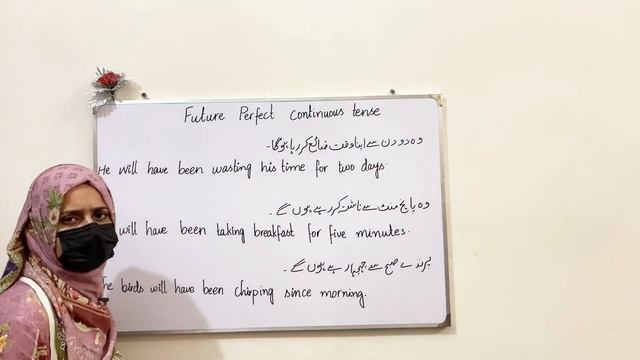 Future Perfect continuous tense
وہ دو دن سے اپنا وقت ضائع کر رہا ہوگا۔
He will have been wasting his time for two days.
وہ پانچ منٹ سے ناشتہ کر رہے ہوں گے۔
will have been taking breakfast for five minutes.
پرندے صبح سے چہچہا رہے ہوں گے۔
The birds will have been chirping since morning.